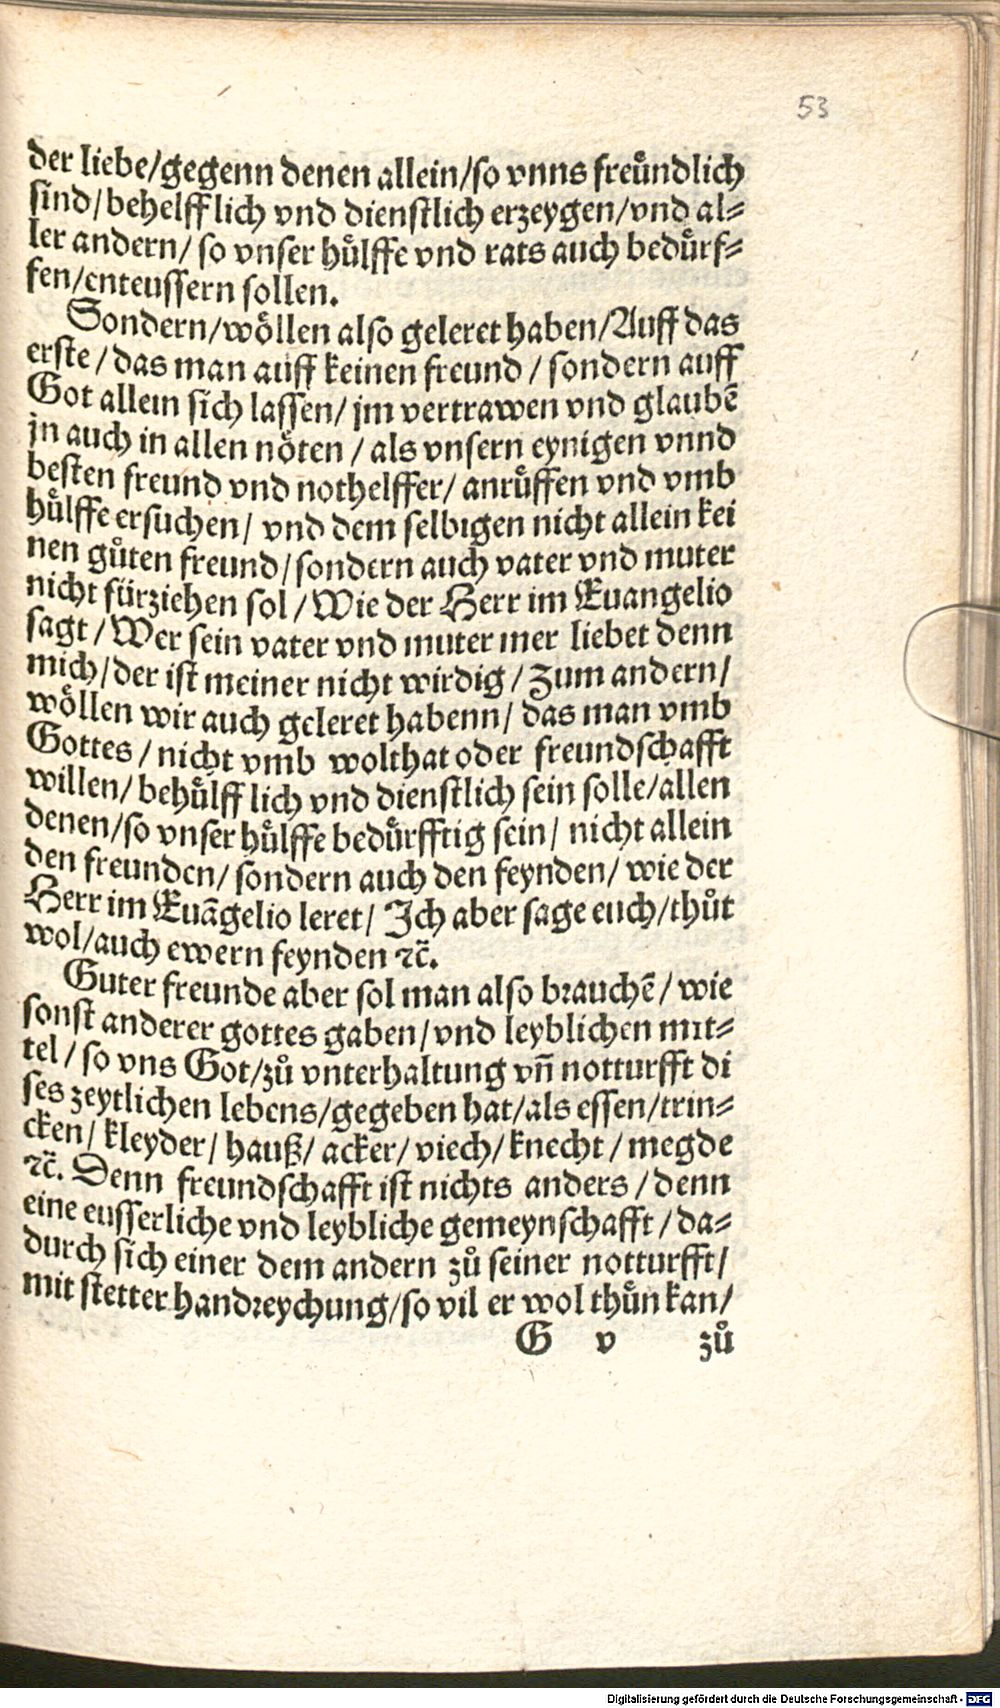 53
der liebe/gegenn denen allein/so vnns freündlich
sind/behelfflich vnd dienstlich erzeygen/vnd al⸗
ler andern/so vnser hülffe vnd rats auch bedürf⸗
fen/enteussern sollen.
Sondern/wöllen also geleret haben/Auff das
erste/das man auff keinen freund/sondern auff
Got allein sich lassen/jm vertrawen vnd glaubē
jn auch in allen nöten/als vnsern eynigen vnnd
besten freund vnd nothelffer/anrüffen vnd vmb
hülffe ersuchen/vnd dem selbigen nicht allein kei
nen gůten freund/sondern auch vater vnd muter
nicht fürziehen sol/Wie der Herr im Euangelio
sagt/Wer sein vater vnd muter mer liebet denn
mich/der ist meiner nicht wirdig/Zum andern/
wöllen wir auch geleret habenn/das man vmb
Gottes/nicht vmb wolthat oder freundschafft
willen/behülfflich vnd dienstlich sein solle/allen
denen/so vnser hülffe bedürfftig sein/nicht allein
den freunden/sondern auch den feynden/wie der
Herr im Euāgelio leret/Ich aber sage euch/thůt
wol/auch ewern feynden ꝛc̄.
Guter freunde aber sol man also brauchē/wie
sonst anderer gottes gaben/vnd leyblichen mit⸗
tel/so vns Got/zů vnterhaltung vñ notturfft di
ses zeytlichen lebens/gegeben hat/als essen/trin⸗
cken/kleyder/hauß/acker/viech/knecht/megde
ꝛc̄. Denn freundschafft ist nichts anders/denn
eine eusserliche vnd leybliche gemeynschafft/da⸗
durch sich einer dem andern zů seiner notturfft/
mit stetter handreychung/so vil er wol thün kan/
G v zů
Digitalisierung gefördert durch die Deutsche Forschungsgemeinschaft - DFG